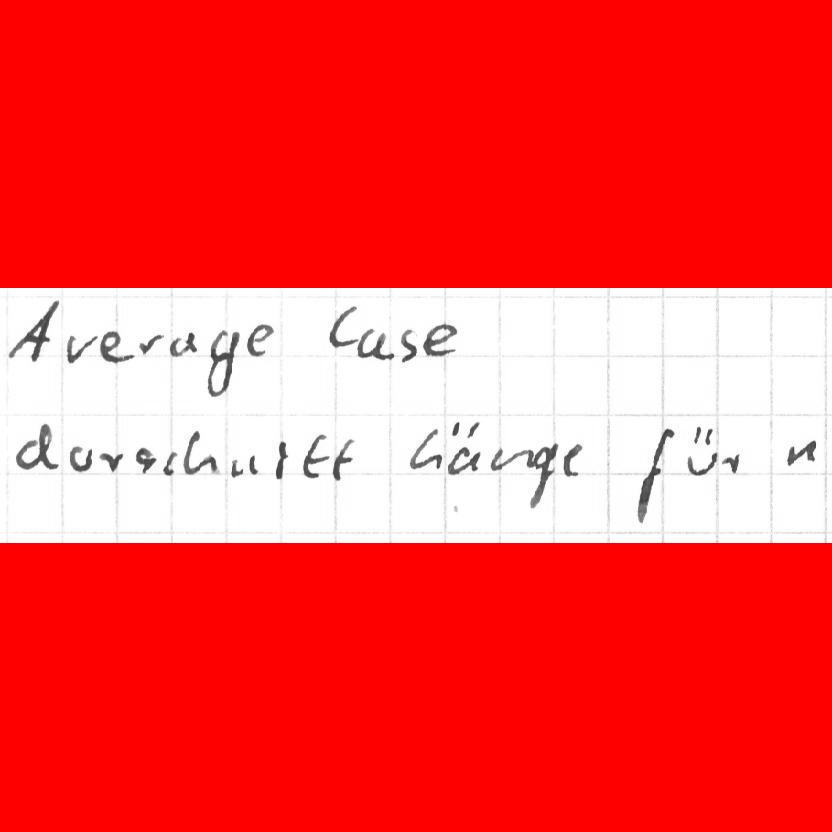 Average Case
durschnitt hänge für n